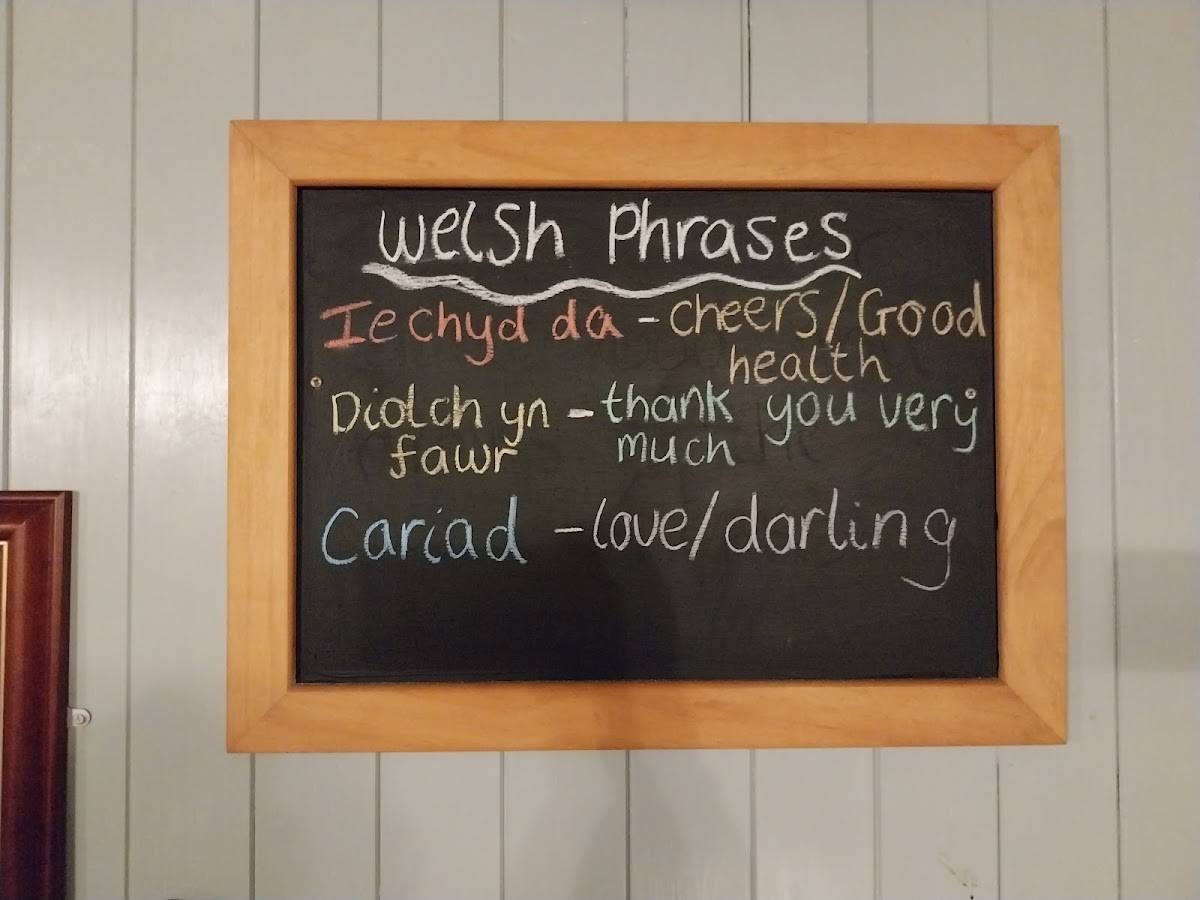 Welsh Phrases
Iechyd da - cheers/Good
health
Diolch yn - thank you very
fawr much
Cariad - love/darling